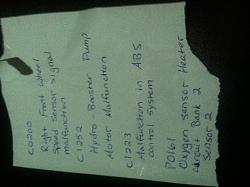 C0200
Right Front Wheel
Speed Sensor Signal
malfunction
C1252
Hydro Booster Pump
Motor Malfunction
C1223
Malfunction in ABS
control system
P0161
Oxygen sensor Heater
Circuit Bank 2
Sensor 2